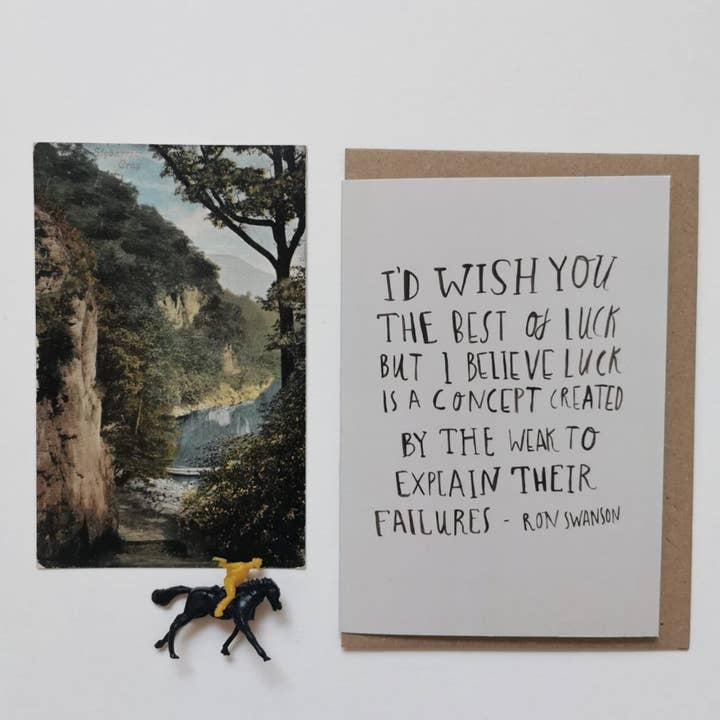 Crag
I'D WISH YOU
THE BEST Of LUCK
BUT I BELIEVE LUCK
IS A CONCEPT CREATED
BY THE WEAK TO
EXPLAIN THEIR
FAILURES - RON SWANSON